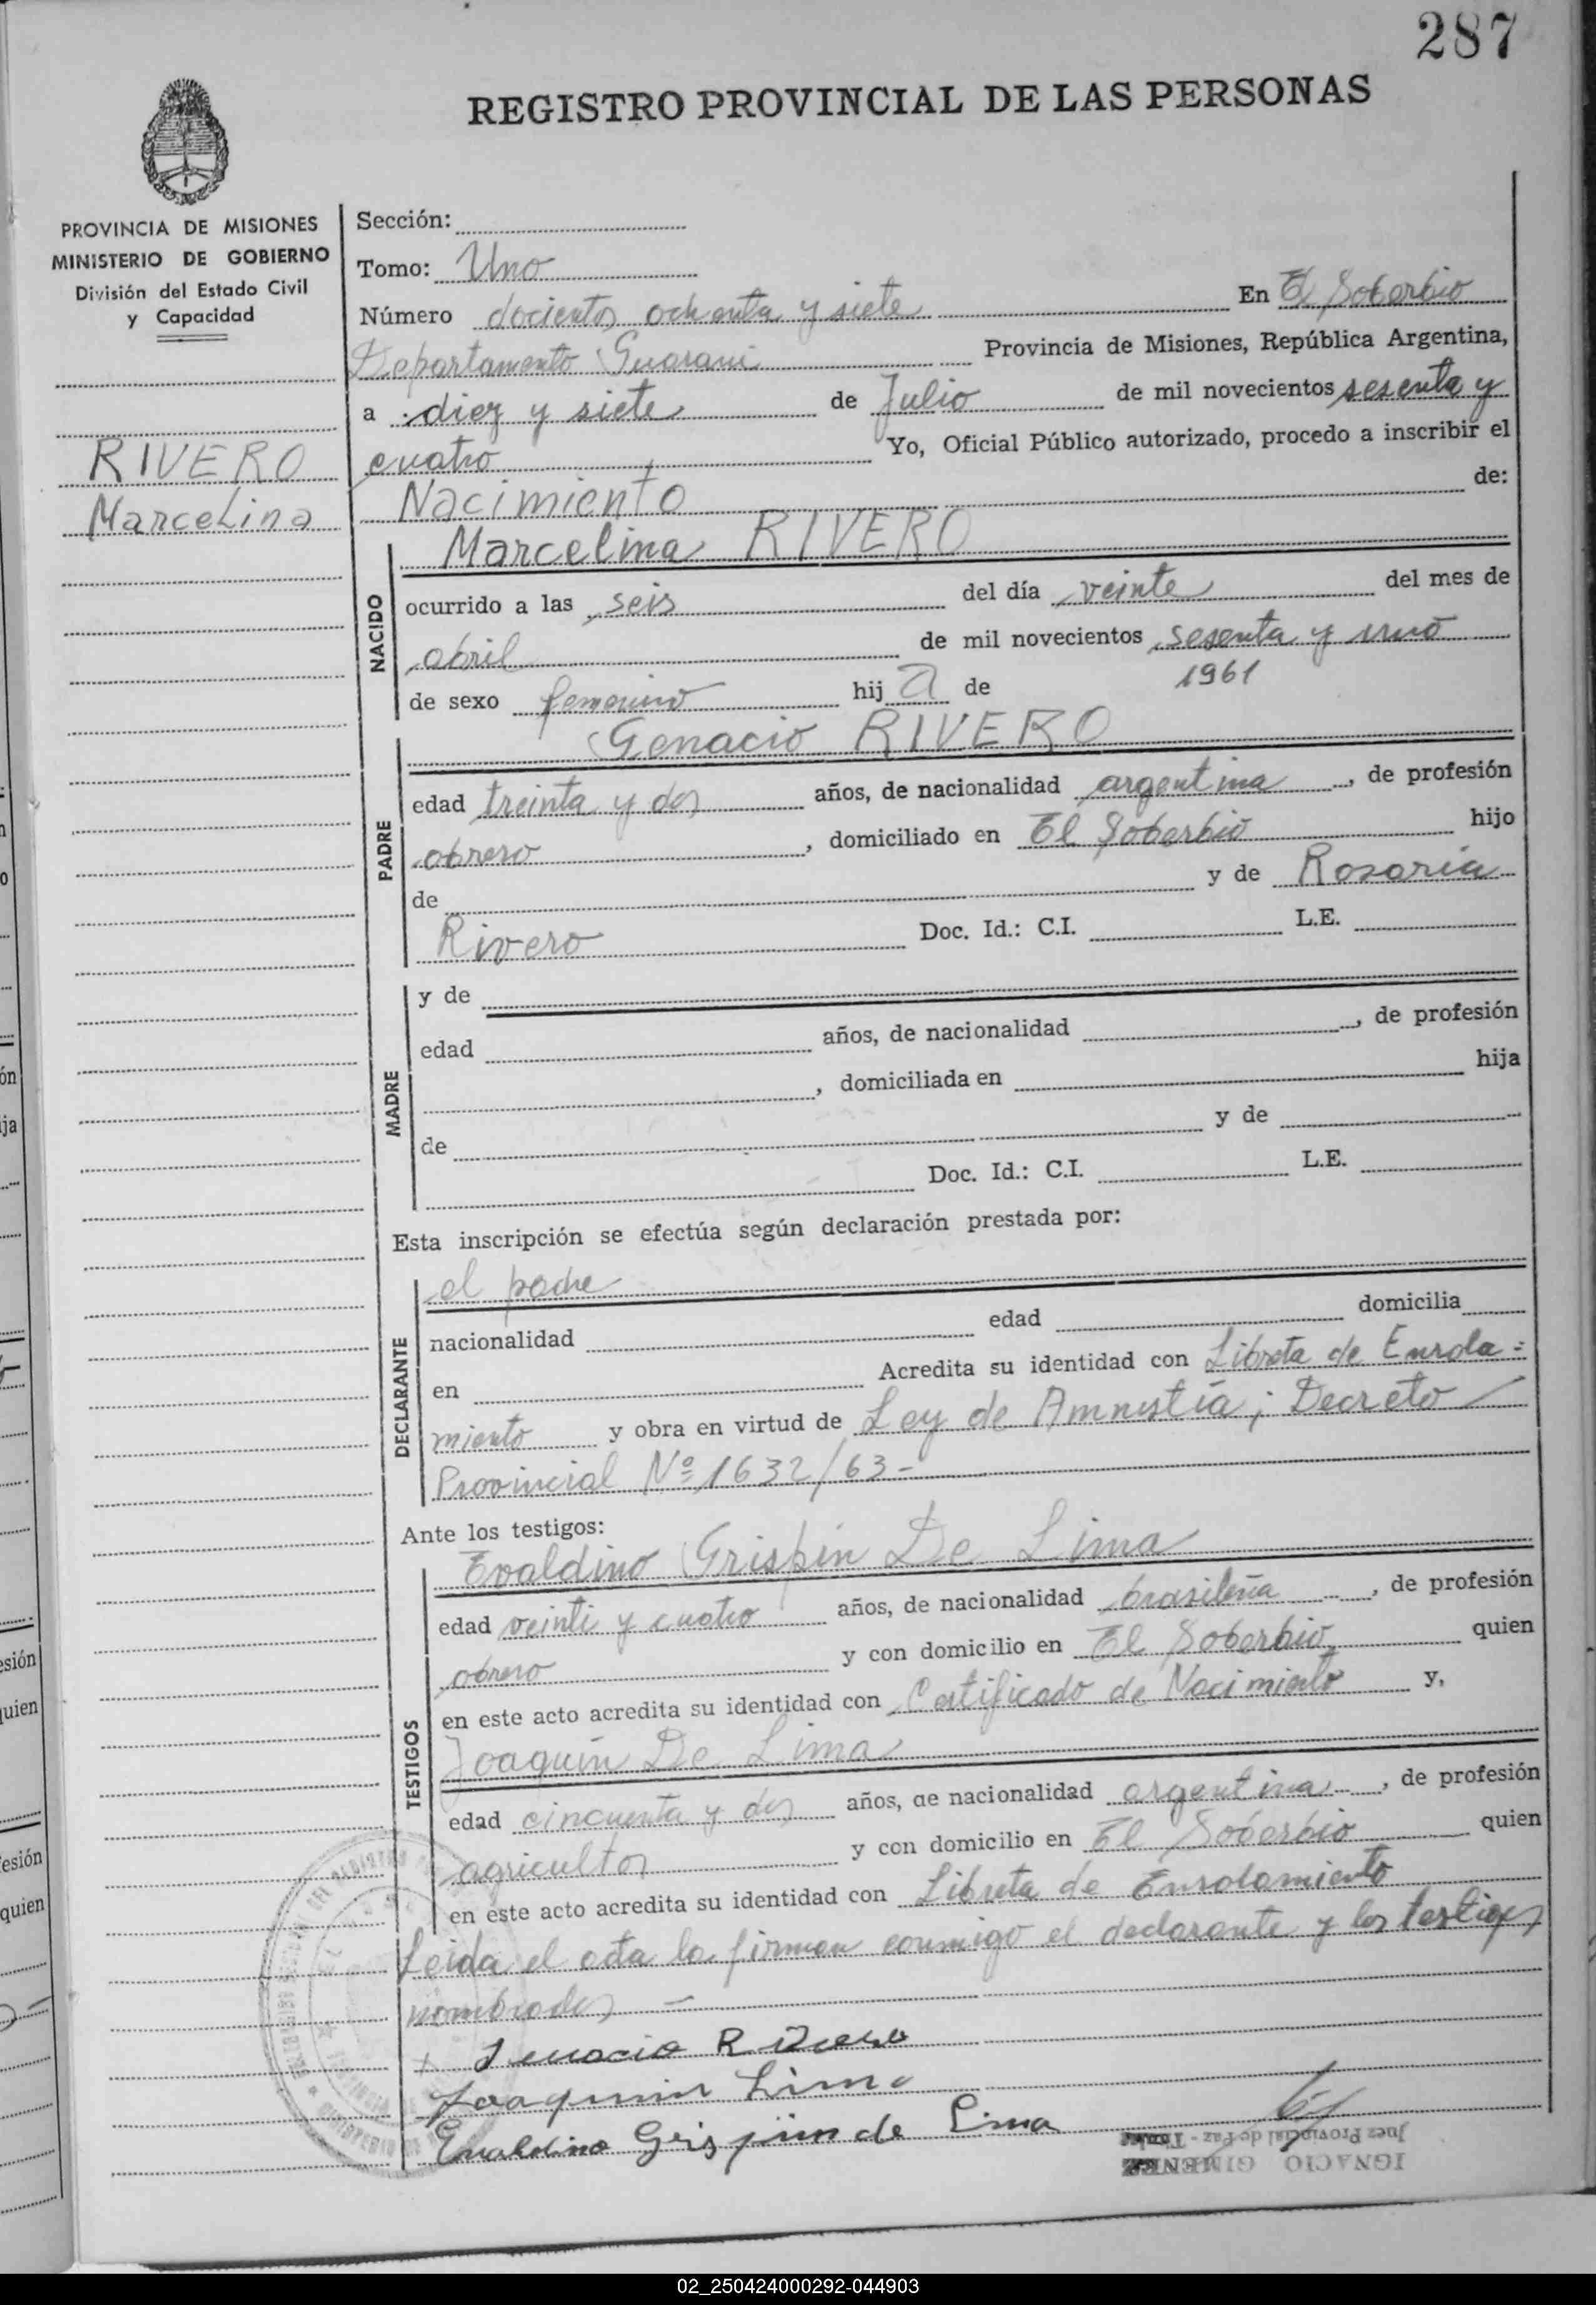 287
REGISTRO PROVINCIAL DE LAS PERSONAS
PROVINCIA DE MISIONES
MINISTERIO DE GOBIERNO
División del Estado Civil
y Capacidad
RIVERO
Marcelina
Sección:
Tomo: Uno
Número docientos ochenta y siete En El Soberbio
Departamento Guarani Provincia de Misiones, República Argentina,
a diez y siete de Julio de mil novecientos sesenta y
cuatro Yo, Oficial Público autorizado, procedo a inscribir el
Nacimiento de:
NACIDO
Marcelina RIVERO
ocurrido a las seis del día veinte del mes de
abril de mil novecientos sesenta y uno
1961
de sexo femenino hij a de
PADRE
Genacio RIVERO
edad treinta y dos años, de nacionalidad argentina, de profesión
obrero, domiciliado en El Soberbio hijo
de y de Rosaria
Rivero Doc. Id.: C.I. L.E.
MADRE
y de
edad años, de nacionalidad , de profesión
, domiciliada en hija
de y de
Doc. Id.: C.I. L.E.
Esta inscripción se efectúa según declaración prestada por:
DECLARANTE
el padre
nacionalidad edad domicilia
en Acredita su identidad con Libreta de Enrola=
miento y obra en virtud de Ley de Amnistía; Decreto
Provincial Nº 1632/63-
Ante los testigos:
TESTIGOS
Evaldino Grispin De Lima
edad veinti y cuatro años, de nacionalidad brasileña, de profesión
obrero y con domicilio en El Soberbio, quien
en este acto acredita su identidad con Certificado de Nacimiento y,
Joaquin De Lima
edad cincuenta y dos años, de nacionalidad argentina, de profesión
agricultor y con domicilio en El Soberbio quien
en este acto acredita su identidad con Libreta de Enrolamiento
Leida el acta la firman conmigo el declarante y los testigos
nombrados -
Joaquin Lima
Evaldino Grispin de Lima
Juez Provincial de Paz
IGNACIO GIMENEZ
02_250424000292-044903